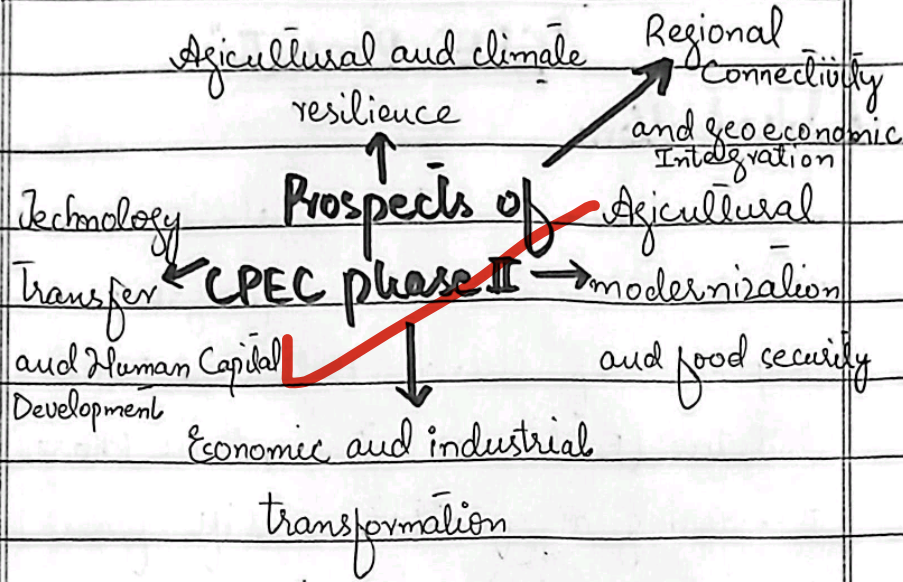 Agricultural and climate
resilience
Regional
Connectivity
and geoeconomic
Integration
Prospects of
CPEC phase II
Technology
Transfer
and Human Capital
Development
Agicultural
modernization
and food security
Economic and industrial
transformation